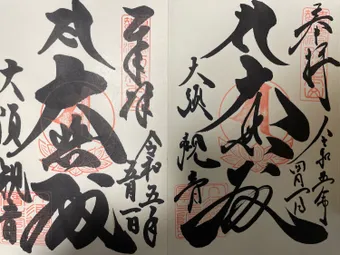 奉拝
令和五年
四月一日
大悲殿
大須観音
奉拝
令和五年
五月一日
大悲殿
大須観音